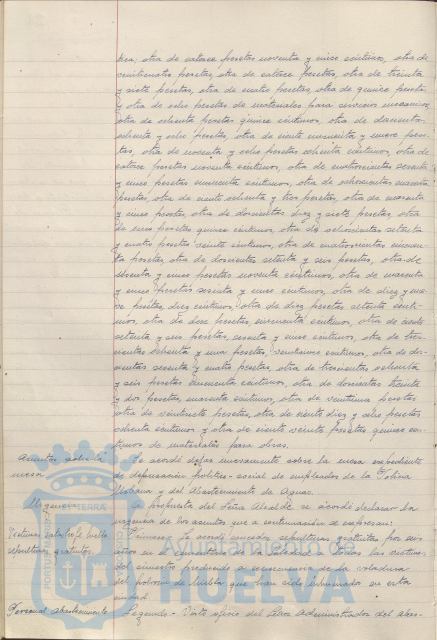 tas, otra de catorce pesetas noventa y cinco céntimos, otra de
veinticuatro pesetas, otra de catorce pesetas, otra de treinta
y siete pesetas, otra de cuatro pesetas, otra de quince pesetas
otra de ocho pesetas de materiales para servicios mecánicos,
otra de ochenta pesetas quince céntimos, otra de
ochenta y ocho pesetas, otra de ciento cincuenta y nueve pese-
tas, otra de noventa y ocho pesetas ochenta céntimos, otra de
catorce pesetas noventa céntimos, otra de cuatrocientas sesenta
y cinco pesetas cincuenta céntimos, otra de ochocientas
pesetas, otra de ciento ochenta y tres pesetas, otra de
y cinco pesetas, otra de doscientas diez y siete pesetas, otra
de cinco pesetas quince céntimos, otra de ochocientas setenta
y cuatro pesetas veinte céntimos, otra de cuatrocientas cincuen-
ta pesetas, otra de doscientas setenta y seis pesetas, otra de
ochenta y cinco pesetas noventa céntimos, otra de
y cinco pesetas sesenta y cinco céntimos, otra de diez y nue-
ve pesetas, diez céntimos, otra de diez pesetas setenta cénti-
mos, otra de doce pesetas cincuenta céntimos, otra de
setenta y seis pesetas, sesenta y cinco céntimos, otra de tres-
cientas ochenta y una pesetas, céntimos, otra de do-
cientas sesenta y cuatro pesetas, otra de trescientas ochenta
y seis pesetas cincuenta céntimos, otra de doscientas treinta
y dos pesetas, cuarenta céntimos, otra de veintiuna pesetas
otra de veintisiete pesetas, otra de ciento diez y ocho pesetas
ochenta céntimos y otra de ciento veinte pesetas quince cén-
timos de materiales para obras.
Asuntos sobre la
mesa
Se acordó dejar nuevamente sobre la mesa expediente
de depuración político-social de empleados de la Policía
Urbana y del Abastecimiento de Aguas.
Urgencia
A propuesta del Señor Alcalde se acordó declarar la
urgencia de los asuntos que a continuación se expresan:
sepulturas gratuitas.
Primero.- Se acordó conceder sepulturas gratuitas por
años en el Cementerio de la Soledad a todas las víctimas
del siniestro producido a consecuencia de la voladura
del polvorín de Huelva que han sido inhumados en esta
ciudad.
Personal abastecimiento
Segundo.- Visto oficio del Señor Administrador del Abas-
Ayuntamiento de
HUELVA